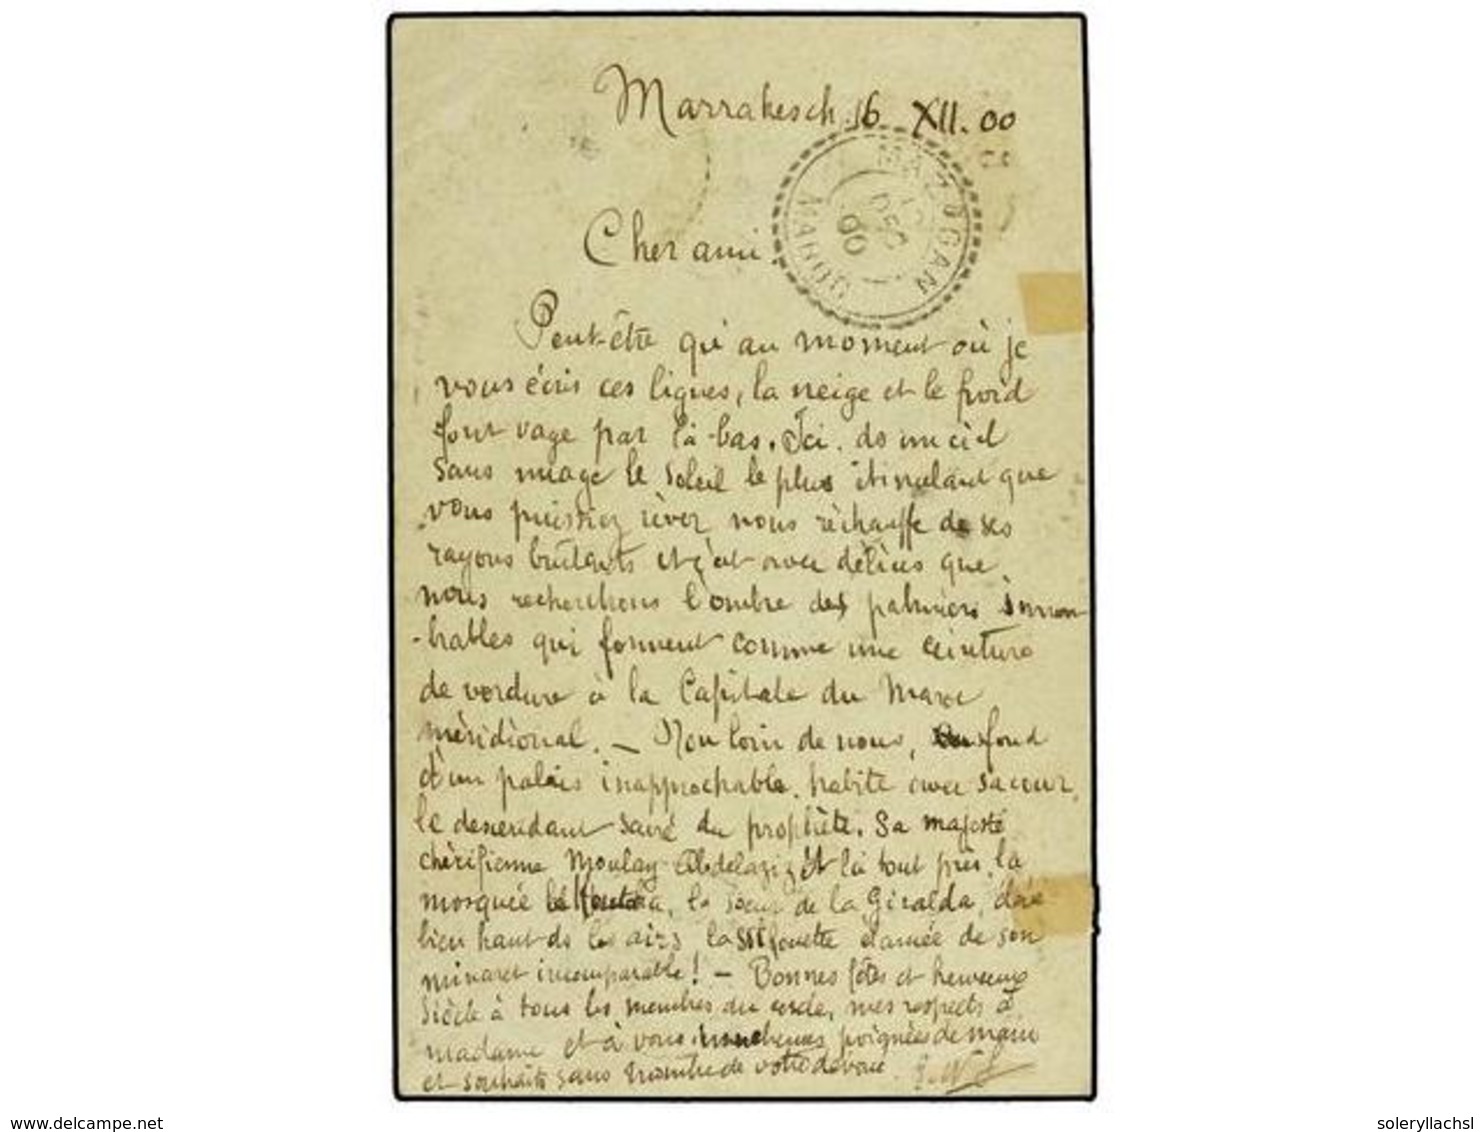 Marrakesch. 16 XII. 00
MAZAGAN
DEC
00
MAROC
Cher ami.
Peut-être qu'au moment où je
vous écris ces lignes, la neige et le froid
font rage par là-bas. Ici. ds un ciel
sans nuage le soleil le plus étincelant que
vous puissiez rêver nous réchauffe de ses
rayons brûlants et c'est avec délices que
nous recherchons l'ombre des palmiers innom
-brables qui forment comme une ceinture
de verdure à la Capitale du Maroc
méridional. — Non loin de nous, au fond
d'un palais inapprochable. habite avec sa cour,
le descendant sacré du prophète. Sa majesté
chérifienne Moulay Abdelaziz Et là tout près, la
mosquée la Koutoubia, la soeur de la Giralda, élève
bien haut ds les airs la silhouette élancée de son
minaret incomparable! — Bonnes fêtes et heureux
siècle à tous les membres du cercle, mes respects à
madame et à vous. poignées de main
et souhaits sans nombre de votre dévoué
www.delcampe.net
soleryllachsl